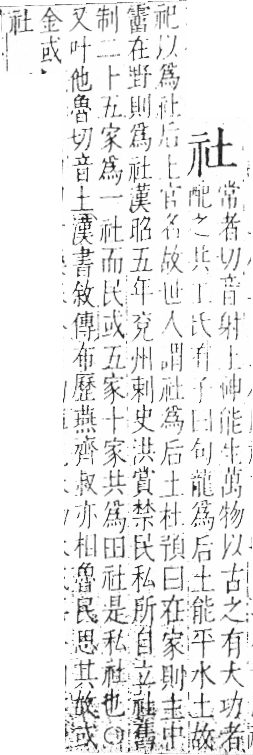 社
常者切音射土神能生萬物以古之有大功者
配之共工氏有子曰句龍為后土能平水土故
祀以為社后土官名故世人謂社為后土杜預曰在家則主中
霤在野則為社漢昭五年兗州刺史洪賞禁民私所自立社舊
制二十五家為一社而民或五家十家共為田社是私社也○
又叶他魯切音土漢書敘傳布歷燕齊叔亦相魯民思其故或
金或
社